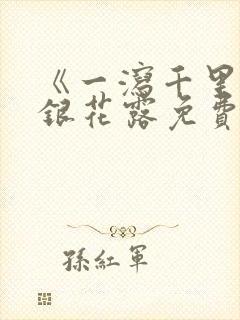 《一瀉千里
銀花露免費
孫紅軍